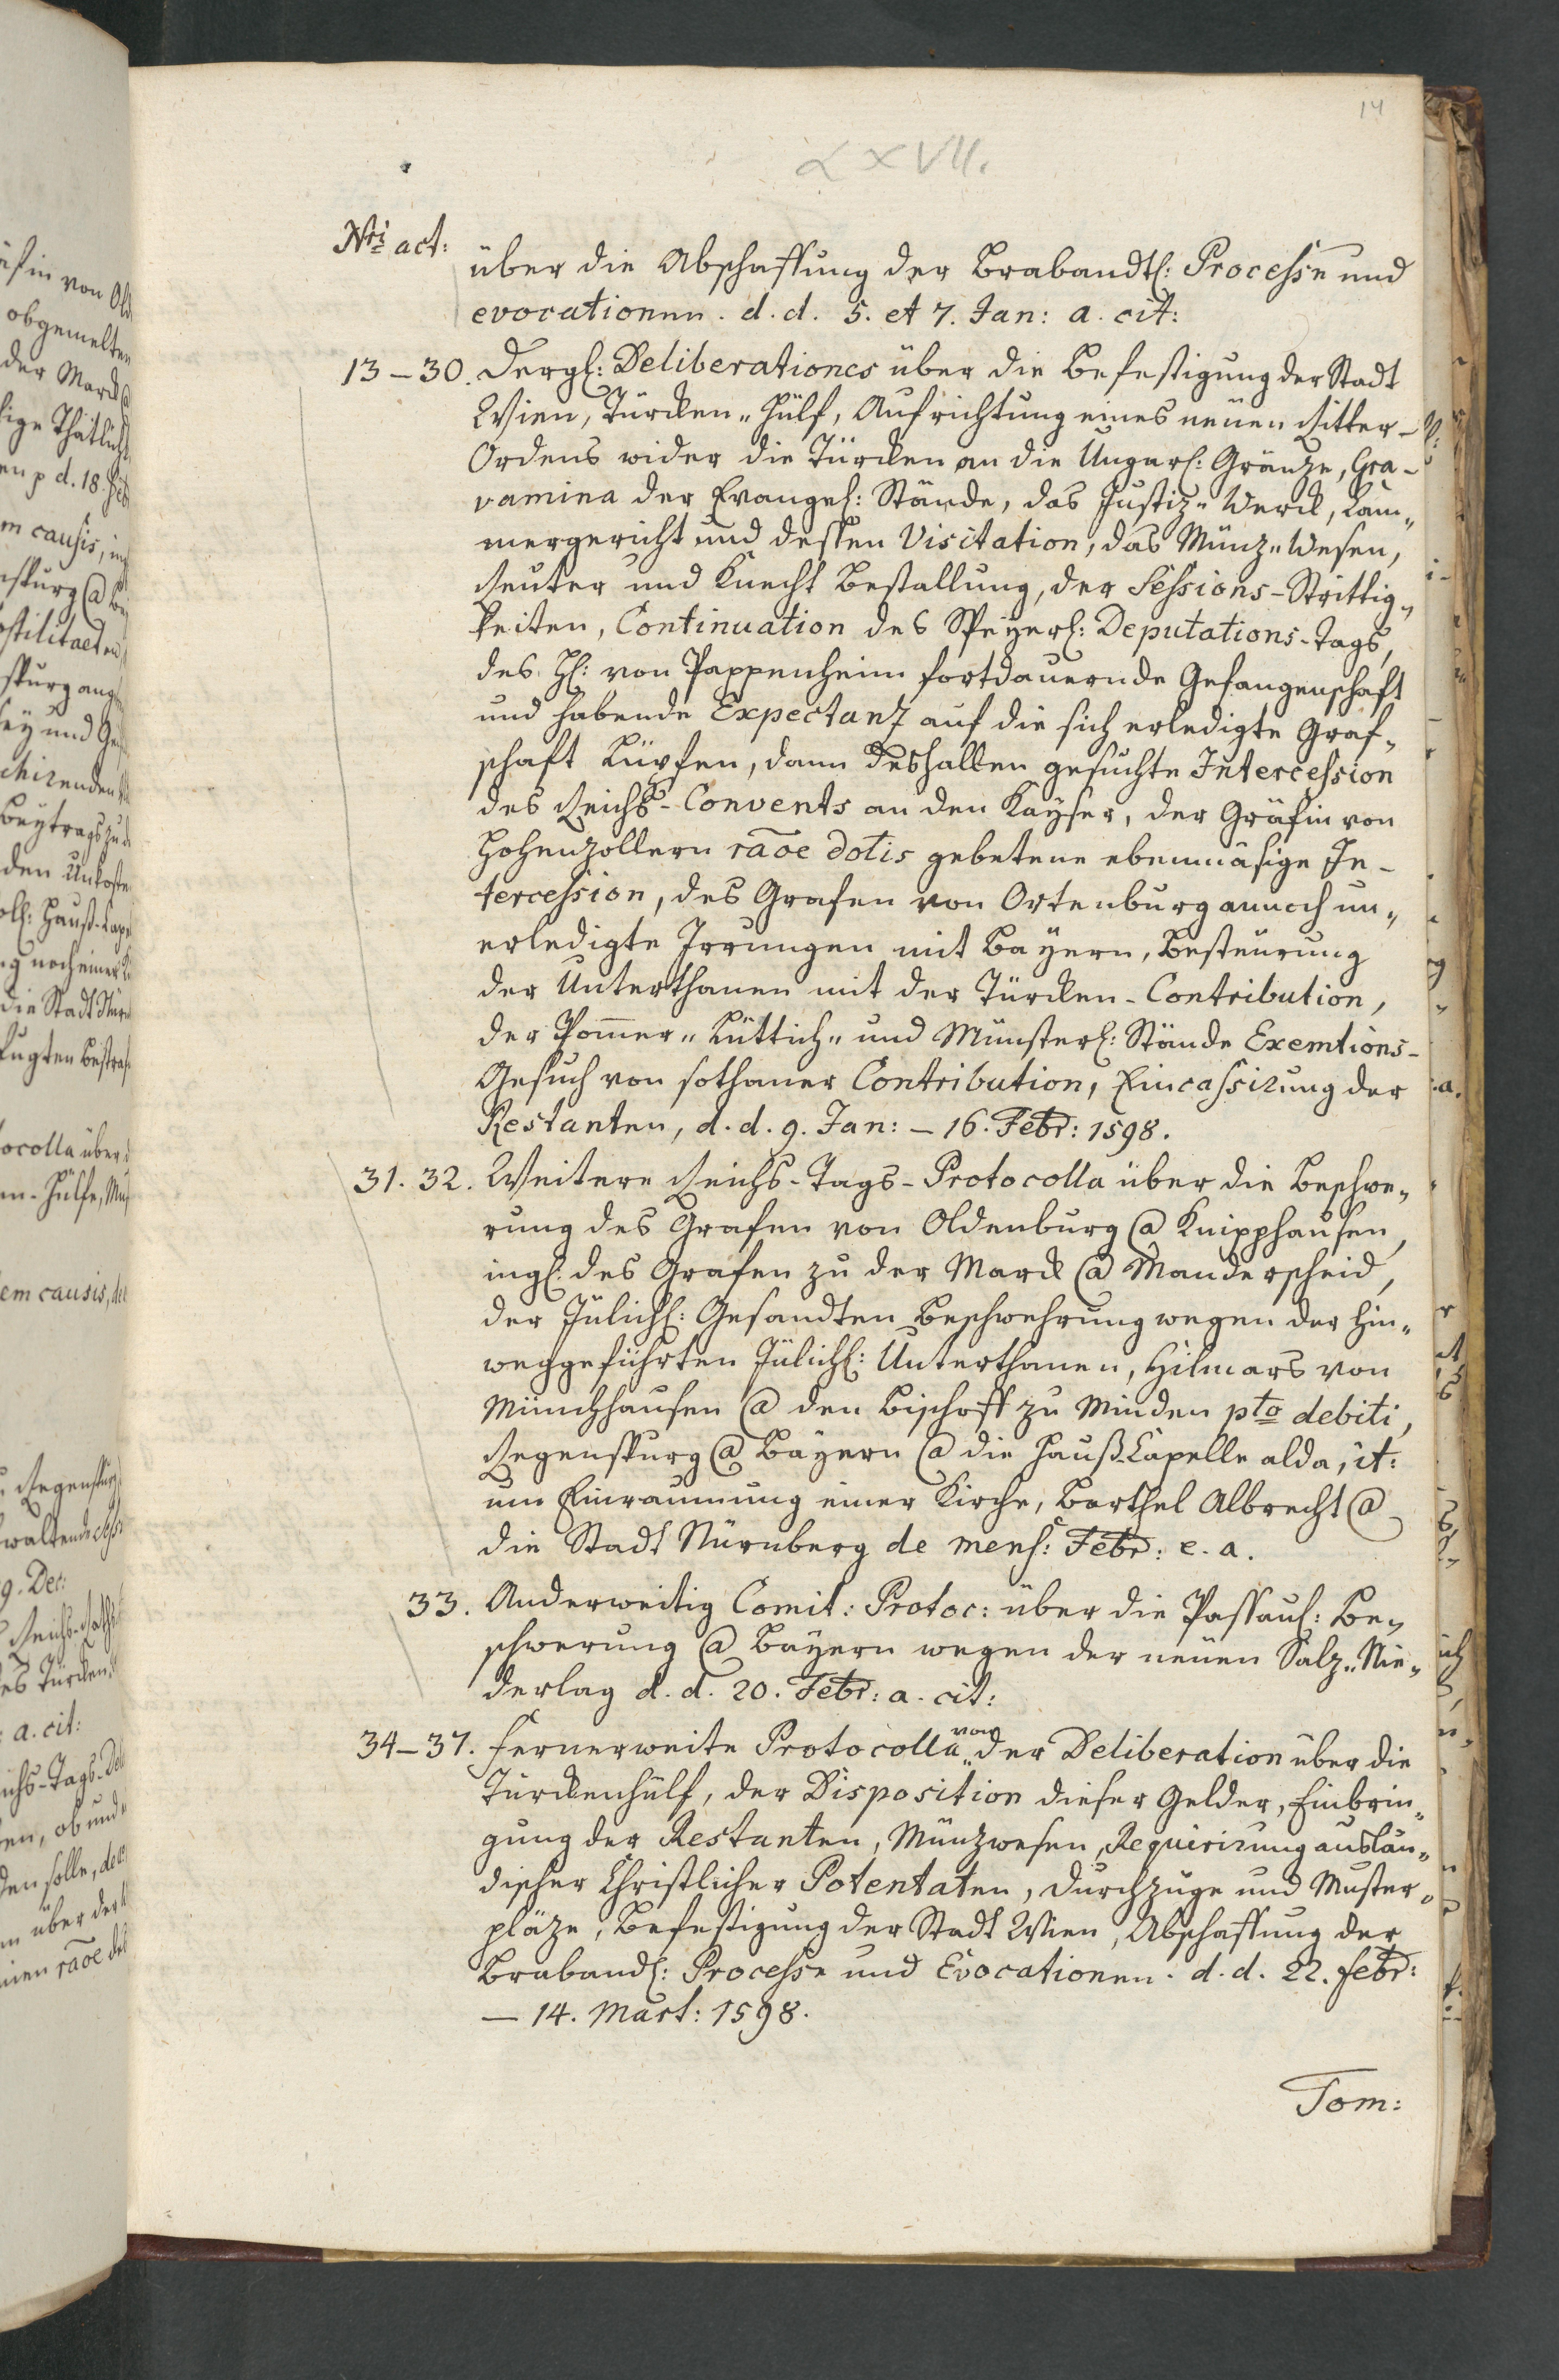 14
LXVII.
Nri act:
über die Abschaffung der Brabandtl: Processe und
evocationen. d. d. 5. et 7. Jan: a. cit:
13–30. Dergl: Deliberationes über die Befestigung der Stadt
Wien, Türcken-Hülf, Aufrichtung eines neuen Ritter-
Ordens wider die Türcken an die Ungarl: Gränze, Gra-
vamina der Evangel: Stände, das Justiz-Werck, Cam-
mergericht und dessen Visitation, das Münz-Wesen,
Reuter und Knecht Bestallung, der Sessions-Strittig-
keiten, Continuation des Speyerl: Deputations-Tags,
des H: von Pappenheim fortdauernde Gefangenschaft
und habende Expectanz auf die sich erledigte Graf-
schaft Lüpfen, dann deshalben gesuchte Intercession
des Reichs-Convents an den Kayser, der Gräfin von
Hohenzollern raõe dotis gebetene ebenmäsige In-
tercession, des Grafen von Ortenburg annoch un-
erledigte Irrungen mit Bayern, Besteurung
der Unterthanen mit der Türcken-Contribution,
der Pom̄er- Lüttich- und Münsterl: Stände Exemtions-
Gesuch von sothaner Contribution, Eincassirung der
Restanten, d. d. 9. Jan: – 16. Febr: 1598.
31. 32. Weitere Reichs-Tags-Protocolla über die Beschwe-
rung des Grafen von Oldenburg @ Knipphausen,
ingl: des Grafen zu der Marck @ Manderscheid,
der Jülichl: Gesandten Beschwehrung wegen der hin-
weggeführten Jülichl: Unterthanen, Hilmars von
Münchhausen @ den Bischoff zu Minden pto debiti,
Regenspurg @ Bayern @ die Hauß-Capelle alda, it:
um Einraumung einer Kirche, Barthel Albrecht @
die Stadt Nürnberg de mens: Febr: e. a.
33. Anderweitig Comit: Protoc: über die Passaul: Be-
schwerung @ Bayern wegen der neuen Salz-Nie-
derlag d. d. 20. Febr: a. cit:
34–37. Fernerweite Protocolla von der Deliberation über die
Türckenhülf, der Disposition dieser Gelder, Einbrin-
gung der Restanten, Münzwesen, Requirirung auslän-
discher Christlicher Potentaten, Durchzüge und Muster-
pläze, Befestigung der Stadt Wien, Abschaffung der
Brabandl: Processe und Evocationen. d. d. 22. Febr:
– 14. Mart: 1598.
Tom: